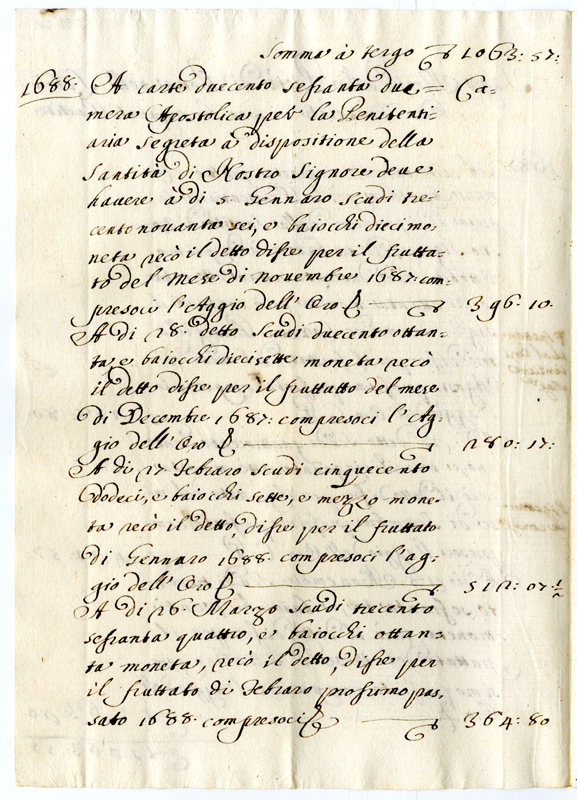 Somma à tergo ₷ 1063: 57:
1688. A carte duecento sessanta due = Ca=
mera Apostolica per la Penitenti=
aria segreta à dispositione della
Santità di Nostro Signore deve
havere à di 5 Gennaro scudi tre=
cento novanta sei, e baiocchi dieci mo=
neta recò il detto disse per il frutta=
to del Mese di Novembre 1687. com=
presoci l'Aggio dell' Oro 396. 10.
A di 28. detto scudi duecento ottan=
ta e baiocchi diecisette moneta recò
il detto disse per il fruttatto del mese
di Decembre 1687: compresoci l'Ag=
gio dell' Oro 280: 17:
A di 27 Febraro scudi cinquecento
dodeci, e baiocchi sette, e mezzo mone=
ta recò il detto, disse per il fruttato
di Gennaro 1688. compresoci l'ag=
gio dell' Oro 512: 07 ½
A di 26. Marzo scudi trecento
sessanta quattro, e baiocchi ottan=
ta moneta, recò il detto, disse per
il fruttato di Febraro prossimo pas=
sato 1688. compresoci 364: 80